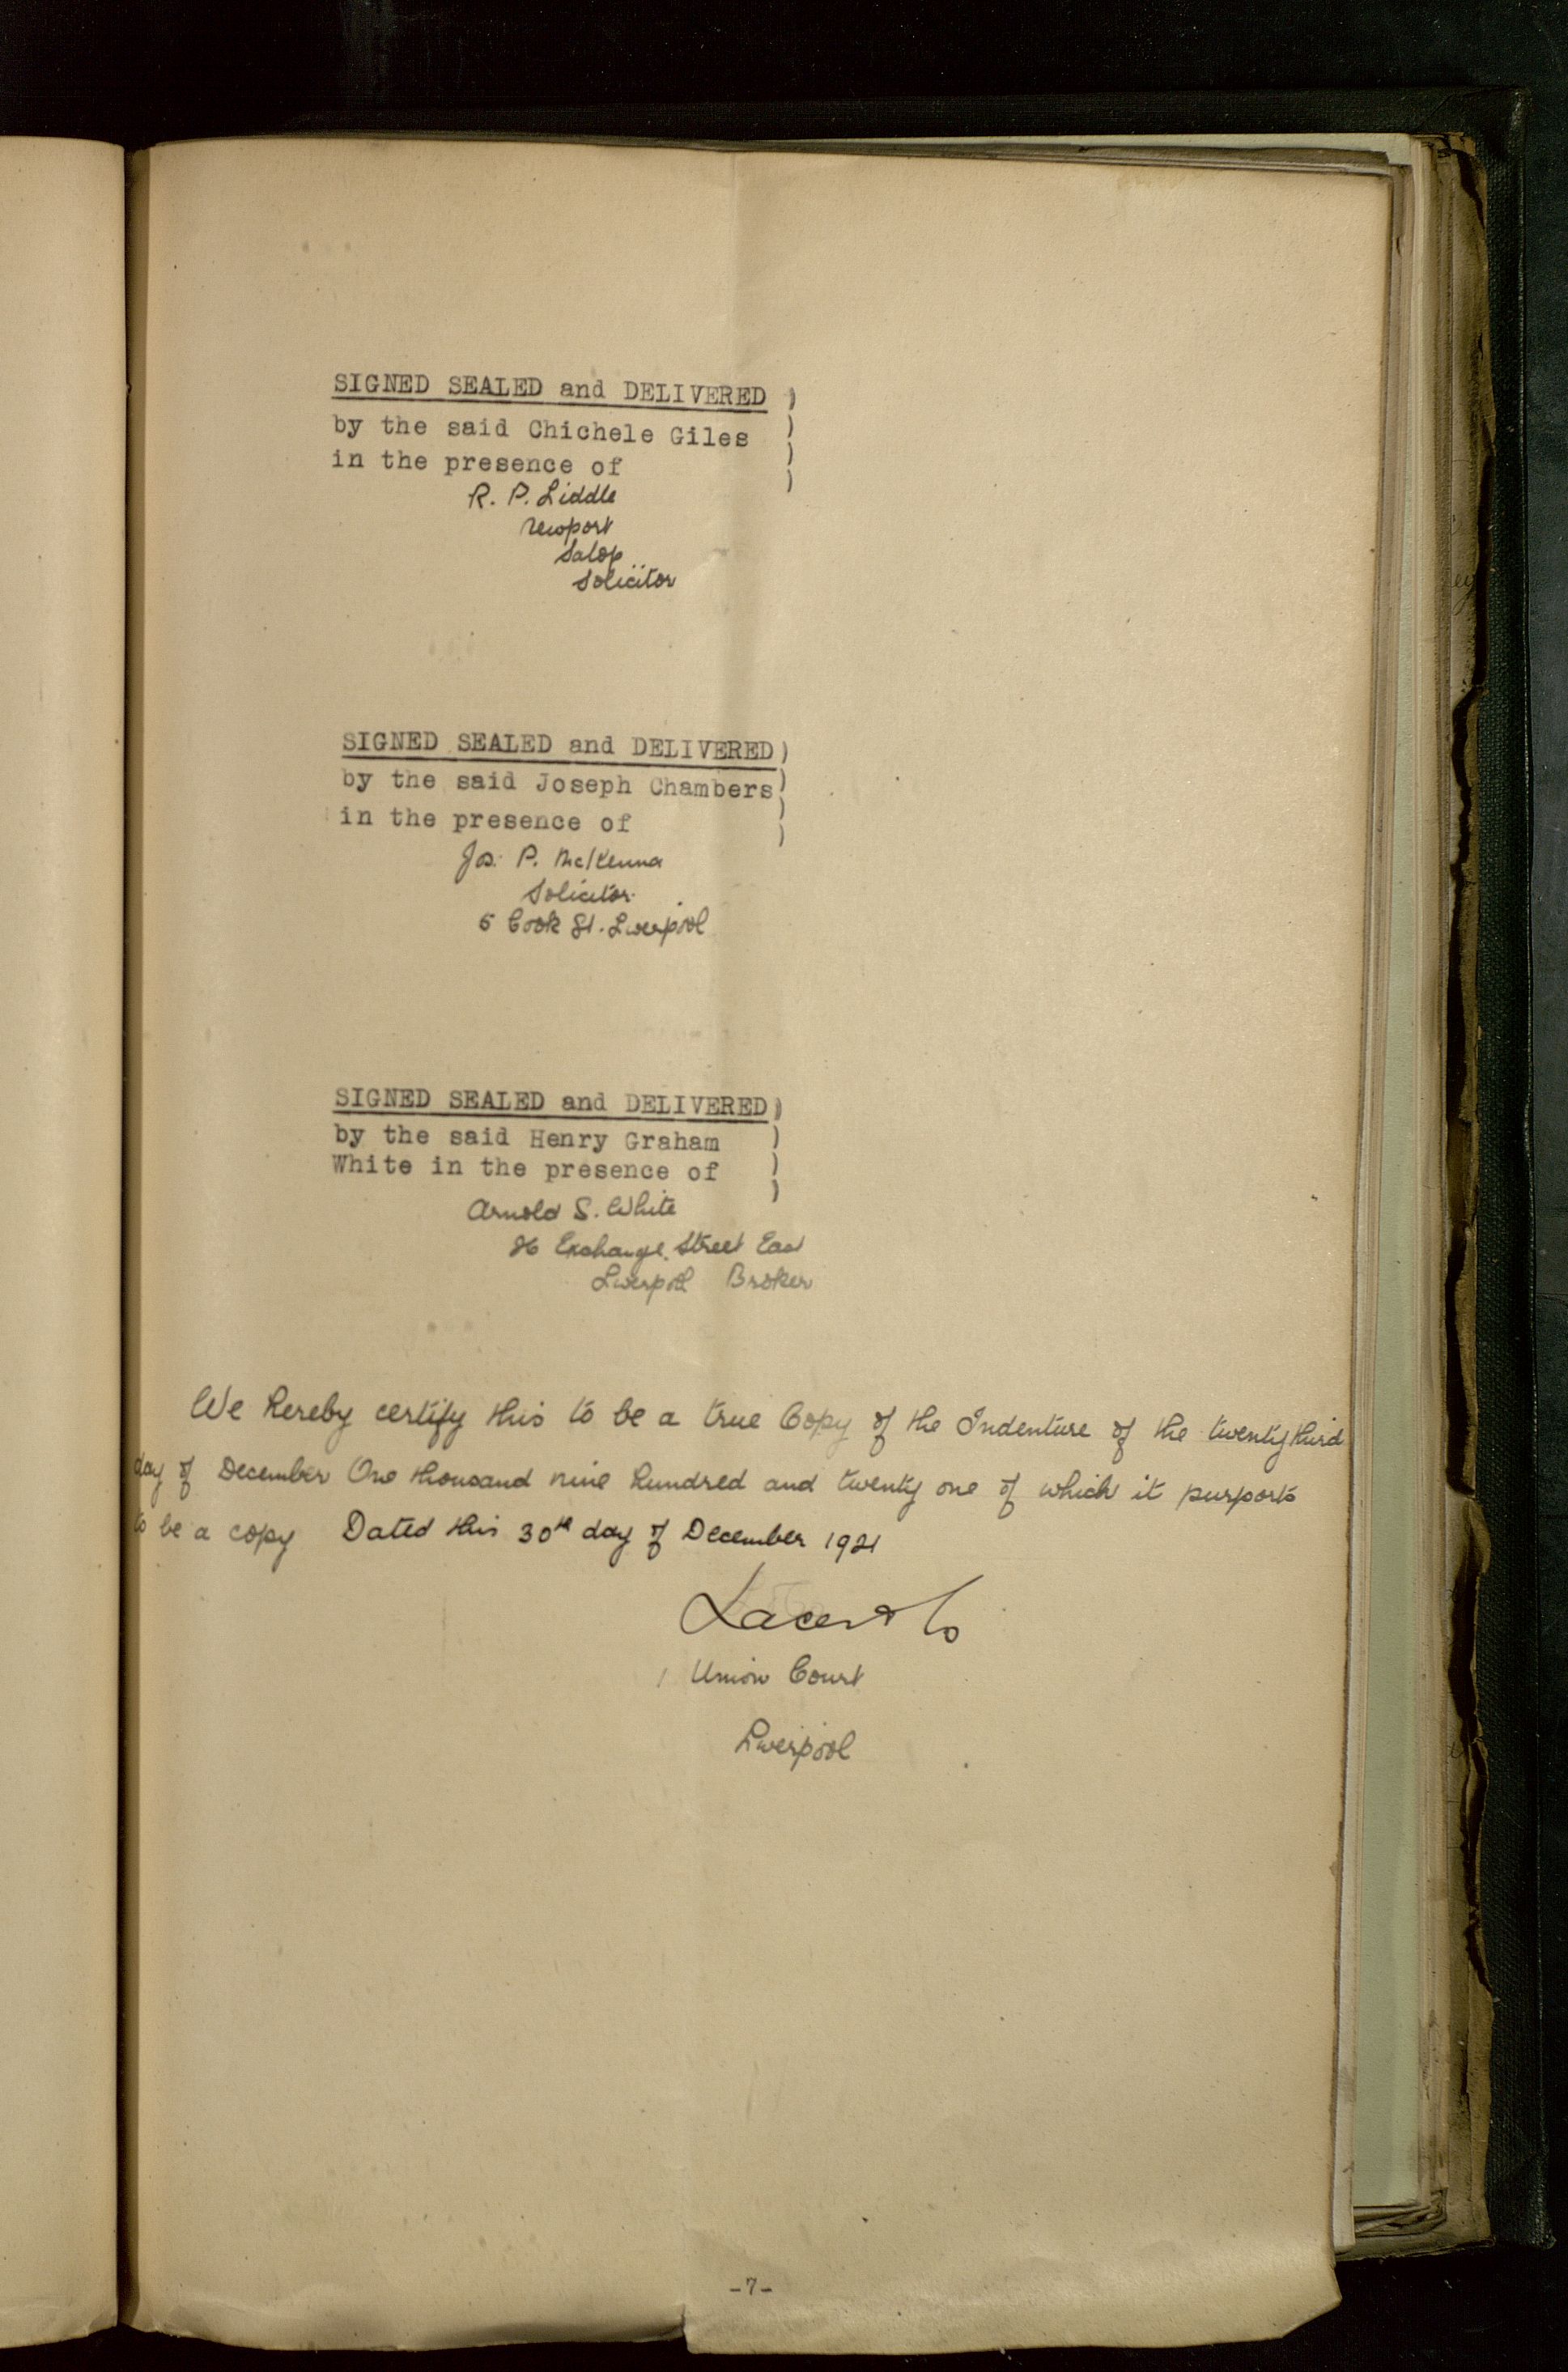 SIGNED SEALED and DELIVERED )
by the said Chichele Giles )
in the presence of )
)
R. P. Liddle
Newport
Salop
Solicitor
SIGNED SEALED and DELIVERED )
by the said Joseph Chambers )
in the presence of )
)
Jos. P. McKenna
Solicitor
5 Cook St. Liverpool
SIGNED SEALED and DELIVERED )
by the said Henry Graham )
White in the presence of )
)
Arnold S. White
Exchange Street East
Liverpool Broker
We hereby certify this to be a true Copy of the Indenture of the twenty third
day of December One thousand nine hundred and twenty one of which it purports
to be a copy Dated this 30th day of December 1921
Laces & Co
1 Union Court
Liverpool
-7-